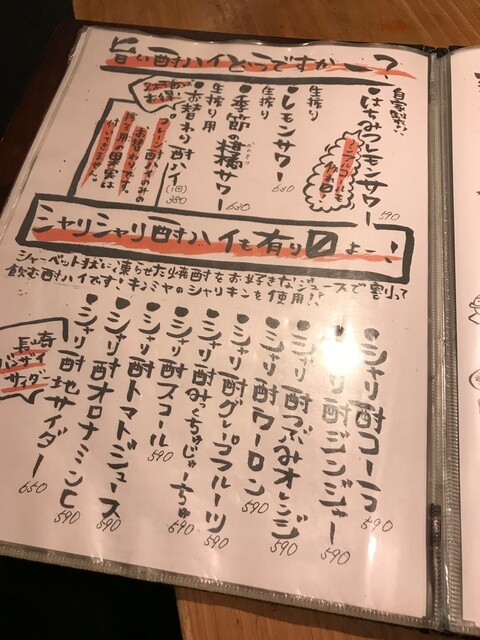 旨い酎ハイどうですかー？
自家製！！
●はちみつレモンサワー 590
ノンアルコールも
生搾り
●レモンサワー 630
生搾り
●季節の柑橘サワー 630
生搾り用
●お替わり酎ハイ(1回) 350
プレーン酎ハイのみの
お替わりです。
搾る用の果実は
付いてきません。
シャリシャリ酎ハイも有り〼よー！
シャーベット状に凍らせた焼酎をお好きなジュースで割って
飲む酎ハイです！キンミヤのシャリキンを使用！！
●シャリ酎コーラ 590
●シャリ酎ジンジャー 590
●シャリ酎つぶみオレンジ 590
●シャリ酎ウーロン 590
●シャリ酎グレープフルーツ 590
●シャリ酎みっくちゅじゅーちゅ 590
●シャリ酎スコール 590
●シャリ酎トマトジュース 590
●シャリ酎オロナミンC 590
●シャリ酎地サイダー 650
長崎
バンザイ
サイダー